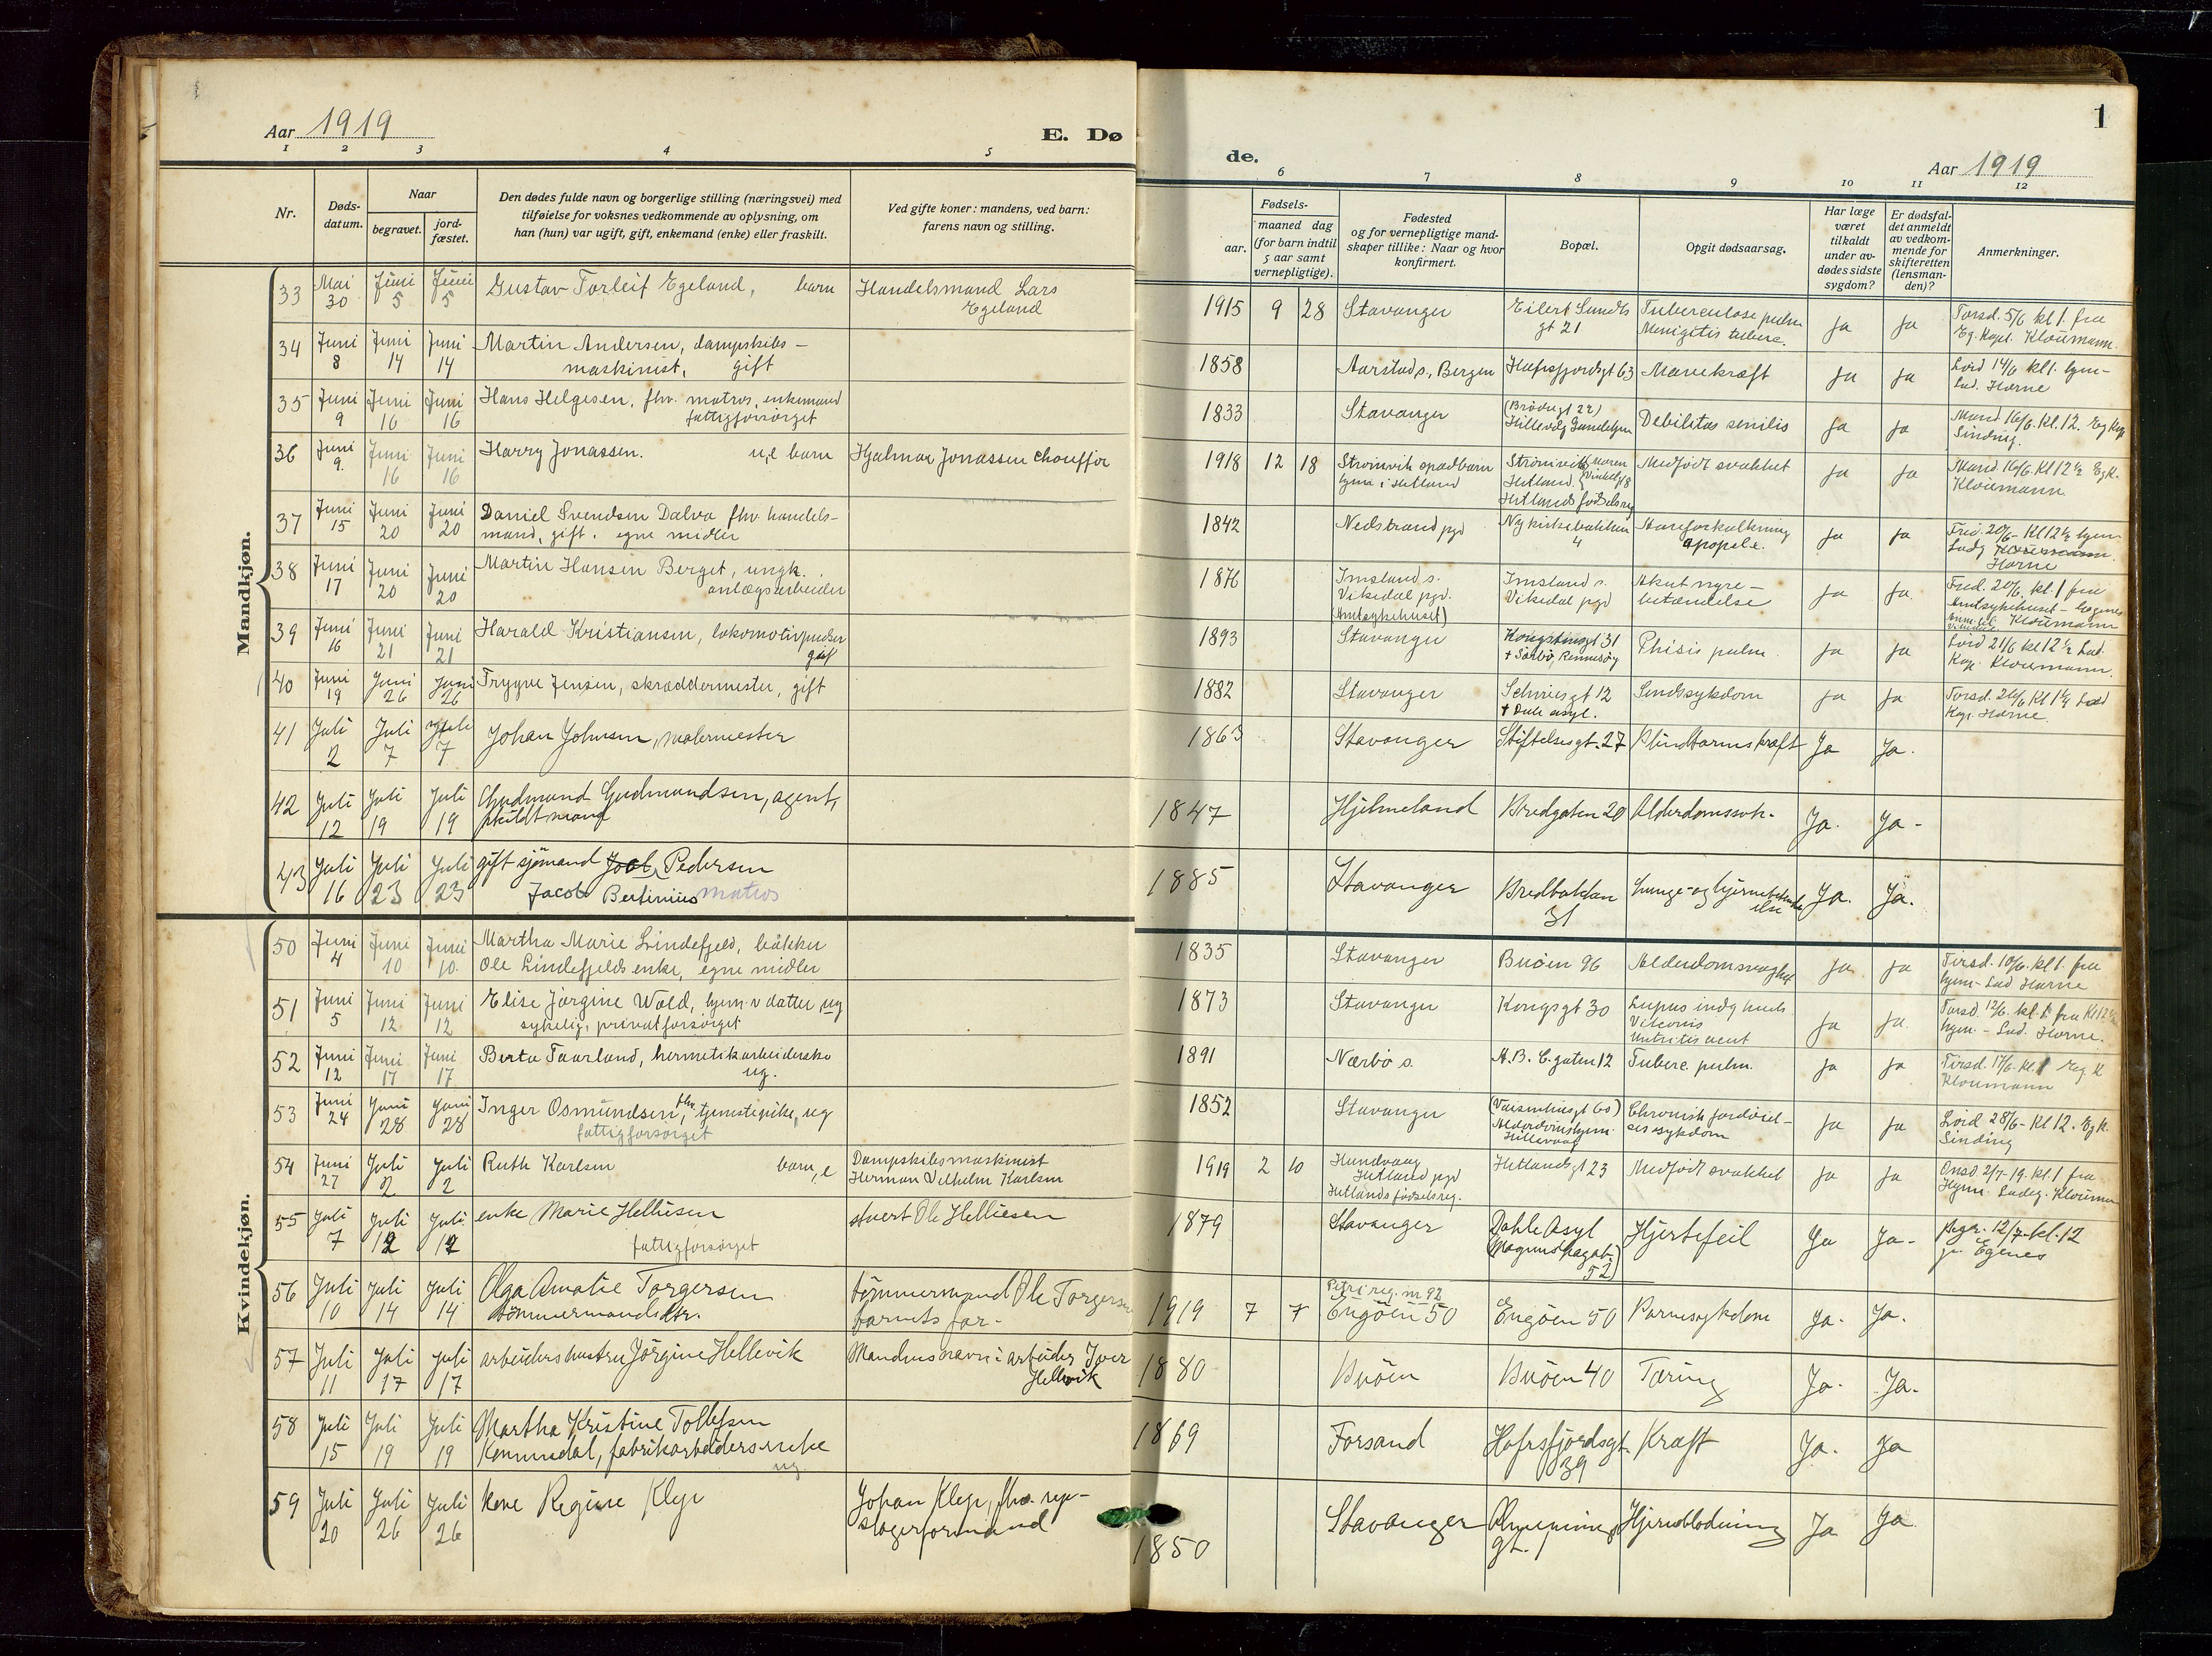 Aar 1919
E. Dø
de.
1
Aar 1919
1 2 3 4 5 6 7 8 9 10 11 12
Nr.
Døds-
datum.
Naar
begravet.
jord-
fæstet.
Den dødes fulde navn og borgerlige stilling (næringsvei) med
tilføielse for voksnes vedkommende av oplysning, om
han (hun) var ugift, gift, enkemand (enke) eller fraskilt.
Ved gifte koner: mandens, ved barn:
farens navn og stilling.
Fødsels-
aar.
maaned dag
(for barn indtil
5 aar samt
vernepligtige).
Fødested
og for vernepligtige mand-
skaper tillike: Naar og hvor
konfirmert.
Bopæl.
Opgit dødsaarsag.
Har læge
været
tilkaldt
under av-
dødes sidste
sygdom?
Er dødsfal-
det anmeldt
av vedkom-
mende for
skifteretten
(lensman-
den)?
Anmerkninger.
Mandkjøn.
33 Mai 30 Juni 5 Juni 5 Gustav Torleif Egeland, barn Handelsmand Lars
Egeland
1915 9 28 Stavanger Eilert Sundts
gt 21 Tuberculose pulm
Menigitis tuberc. Ja Ja Torsd. 5/6 kl 1. fra
Eg. Kapel. Kloumann.
34 Juni 8 Juni 14 Juni 14 Martin Andersen, dampskibs-
maskinist, gift
1858 Aarstad s, Bergen Hafrsfjordsgt 63 Mavekræft Ja Ja Lørd 14/6 kl 1. hjem-
Lad. Horne
35 Juni 9 Juni 16 Juni 16 Hans Helgesen, fhv. matros, enkemand
fattigforsørget
1833 Stavanger (Brødregt 22)
Hillevåg Gamlehjem Debilitas senilis Ja Ja Mand 16/6. Kl. 12. Eg Kap
Sinding.
36 Juni 9. Juni 16 Juni 16 Harry Jonassen. u,e barn Hjalmar Jonassen chauffør
1918 12 18 Strømvik spædbarn
hjem i Hetland Strømvik
Hetland.
Hetlands fødselsreg Medfødt svakhet Ja Ja Mand. 16/6. Kl 12 1/2 Eg K.
Kloumann
37 Juni 15 Juni 20 Juni 20 Daniel Svendsen Dalva fhv handels-
mand, gift. egne midler
1842 Nedstrand pgd Nykirkebakken
4 Aareforkalkning
apoplex. Ja Ja Fred. 20/6 - Kl 12 1/2 hjem
Ladg Kloumann.
Horne
38 Juni 17 Juni 20 Juni 20 Martin Hansen Berget, ungk.
anlægsarbeider
1876 Imsland s.
Vikedal pgd.
(Amtsykehuset) Imsland s.
Vikedal pgd Akut nyre-
betændelse Ja Ja. Fred. 20/6. kl. 1 fra
Amtsykehuset - Egenes
Kloumann
39 Juni 16 Juni 21 Juni 21 Harald Kristiansen, lokomotivpudser
gift
1893 Stavanger Kongstensgt 31
+ Sørbø, Rennesøy Phisis pulm. Ja Ja Lørd 21/6 kl 12 1/2 Lad.
Kap. Kloumann.
40 Juni 19 Juni 26 Juni 26 Trygve Jensen, skræddermester, gift
1882 Stavanger Schives gt 12
+ Dale asyl. Sindssykdom Ja Ja Torsd. 26/6 Kl 1 1/4 Lad
Kap. Horne.
41 Juli 2 Juli 7 Juli 7 Johan Johnsen, malermester
1863 Stavanger Stiftelsesgt. 27 Blindtarmskræft Ja Ja.
42 Juli 12 Juli 19 Juli 19 Gudmund Gudmundsen, agent,
skildt mand
1847 Hjelmeland Bredgaten 20 Alderdomssvk. Ja. Ja -
43 Juli 16 Juli 23 Juli 23 gift sjømand Joak, Pedersen
Jacob Bertinius matros
1885 Stavanger Bredbakken
31 Lunge- og hjernebetænd-
else Ja. Ja.
Kvindekjøn.
50 Juni 4 Juni 10 Juni 10. Martha Marie Lindefjeld, bøkker
Ole Lindefjelds enke, egne midler
1835 Stavanger Buøen 96 Alderdomsvaghet Ja Ja Tirsd. 10/6. kl 1. fra
hjem - Lad Horne
51 Juni 5 Juni 12 Juni 12 Elise Jørgine Wold, hjem v datter ug
sykelig, privatforsørget
1873 Stavanger Kongsgt 30 Lupus Ja Ja. Torsd. 12/6. kl. 1. fra Kl 12 1/2
hjem. - Lad. Horne.
52 Juni 12 Juni 17 Juni 17 Berta Taarland, hermetikarbeiderske
ug.
1891 Nærbø s. A.B.C. gaten 12 Tuberc. pulm. Ja Ja Tirsd. 17/6. kl. 1 Eg K
Kloumann
53 Juni 24 Juni 28 Juni 28 Inger Osmundsen, fhv. tjenestepike, ug
fattigforsørget
1852 Stavanger (Vaisenhusgt 60)
Alderdomshjem.
Hillevaag Chronisk fordøiel-
sessykdom Ja Ja Lørd 28/6 - Kl 12. Eg k.
Sinding
54 Juni 27 Juli 2 Juli 2 Ruth Karlsen barn, e Dampskibsmaskinist
Herman Vilhelm Karlsen
1919 2 10 Hundvaag
Hetland pgd
Hetlands fødselsreg. Hetlandsgt 23 Medfødt svakhet Ja Ja Onsd 2/7-19. kl. 1 fra
Hjem. Ladeg. Kloumann
55 Juli 7 Juli 12 Juli 12 enke Marie Helliesen
fattigforsørget stuert Ole Helliesen
1879 Stavanger Dahle Asyl
(Magnus Lagabt.
52) Hjertefeil Ja Ja - Begr. 12/7 - kl. 12
Egenes
56 Juli 10 Juli 14 Juli 14 Olga Amalie Torgersen
tømmermandsdtr. tømmermand Ole Torgersen
barnets far -
1919 7 7 Petri reg. nr 92
Engøen 50 Engøen 50 Barnesykdom Ja - Ja.
57 Juli 11 Juli 17 Juli 17 arbeidershustru Jørgine Hellevik Mandens navn: arbeider Iver
Hellevik
1880 Buøen Buøen 40 Tæring Ja - Ja -
58 Juli 15 Juli 19 Juli 19 Martha Kristine Tollefsen
fabrikarbeiderske
ug.
1869 Forsand Hafrsfjordsgt.
39 Kræft Ja. Ja
59 Juli 20 Juli 26 Juli 26 kone Regine Klep Johan Klep, fhv. rep-
slagerformand
1850 Stavanger
gt. 1 Hjerneblødning Ja Ja